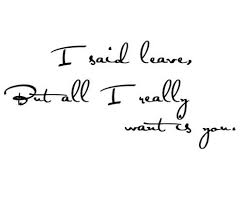 I said leave,
But all I really
want is you.